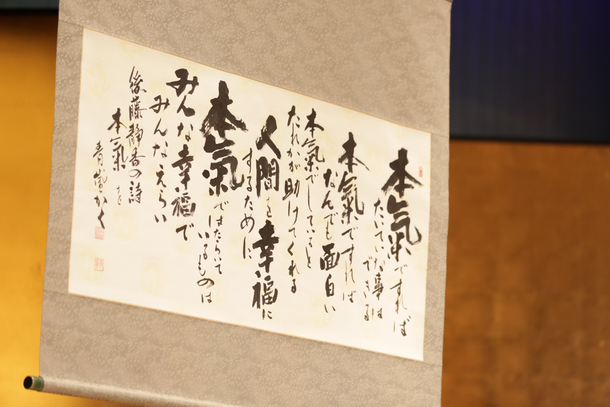 本氣ですれば
たいてい な事は
できる
本氣ですれば
なんでも面白い
本氣でしていると
たれかが助けてくれる
人間を幸福に
するために
本氣ではたらいて
いるものは
みんな幸福で
みんなえらい
後藤静香の詩
本氣
かく